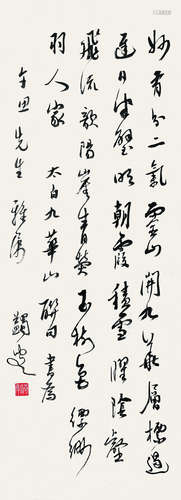 妙有分二氣靈山開九華層標遏
遲日半壁明朝霞積雪曜陰壑
飛流歕陽崖青熒玉樹色縹緲
羽人家 太白九華山聯句書為
先生雅屬